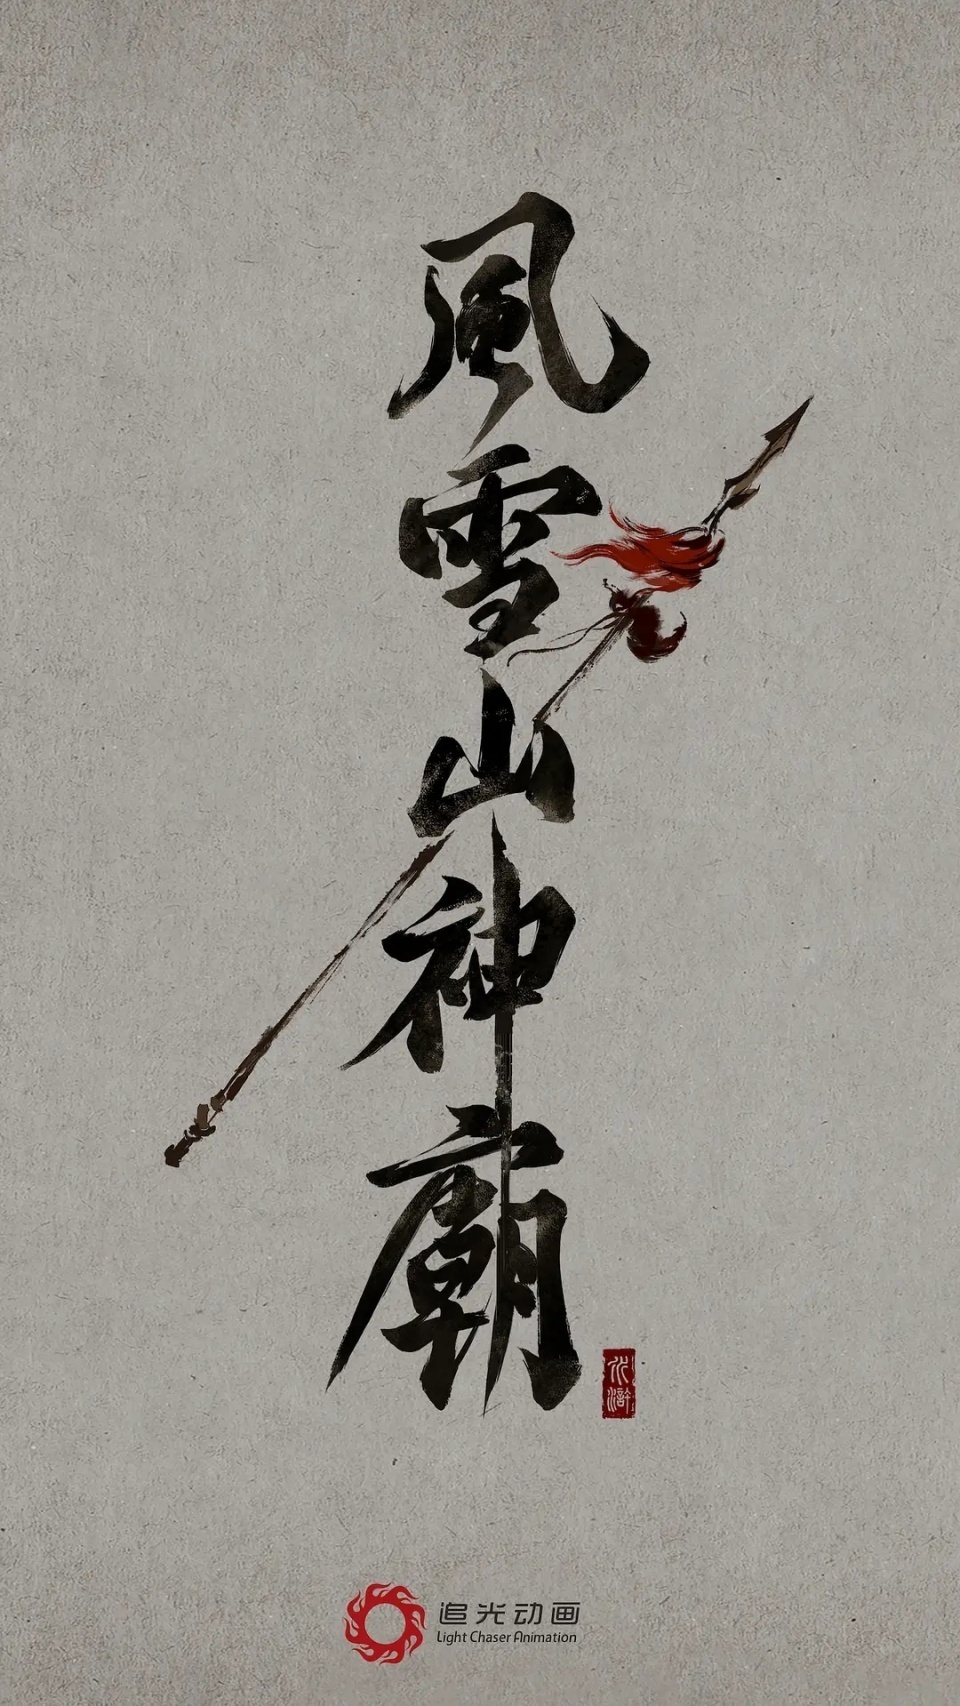 風雪山神廟
水滸
追光动画
Light Chaser Animation